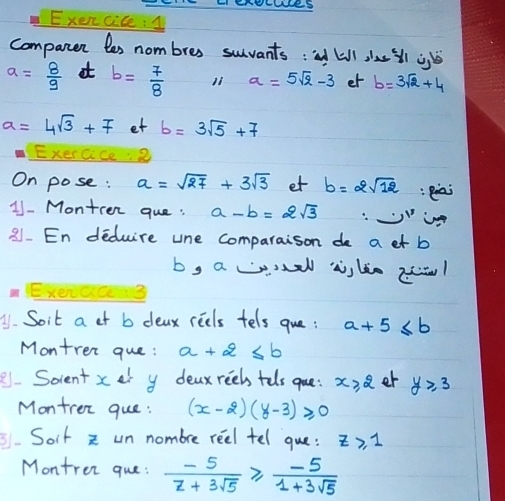 Exercice : 1
Comparer les nombres suivants : قارن الأعداد التالية
a = 8/9 et b = 7/8 // a = 5√2 - 3 et b = 3√2 + 4
a = 4√3 + 7 et b = 3√5 + 7
Exercice : 2
On pose : a = √27 + 3√3 et b = 2√12 : نضع
1)- Montrer que : a - b = 2√3 : بين أن
2)- En déduire une comparaison de a et b
استنتج مقارنة للعددين a و b
Exercice : 3
1)- Soit a et b deux réels tels que : a + 5 ≤ b
Montrer que : a + 2 ≤ b
2)- Soient x et y deux réels tels que : x ≥ 2 et y ≥ 3
Montrer que : (x - 2)(y - 3) ≥ 0
3)- Soit z un nombre réel tel que : z ≥ 1
Montrer que : -5/(z + 3√5) ≥ -5/(1 + 3√5)